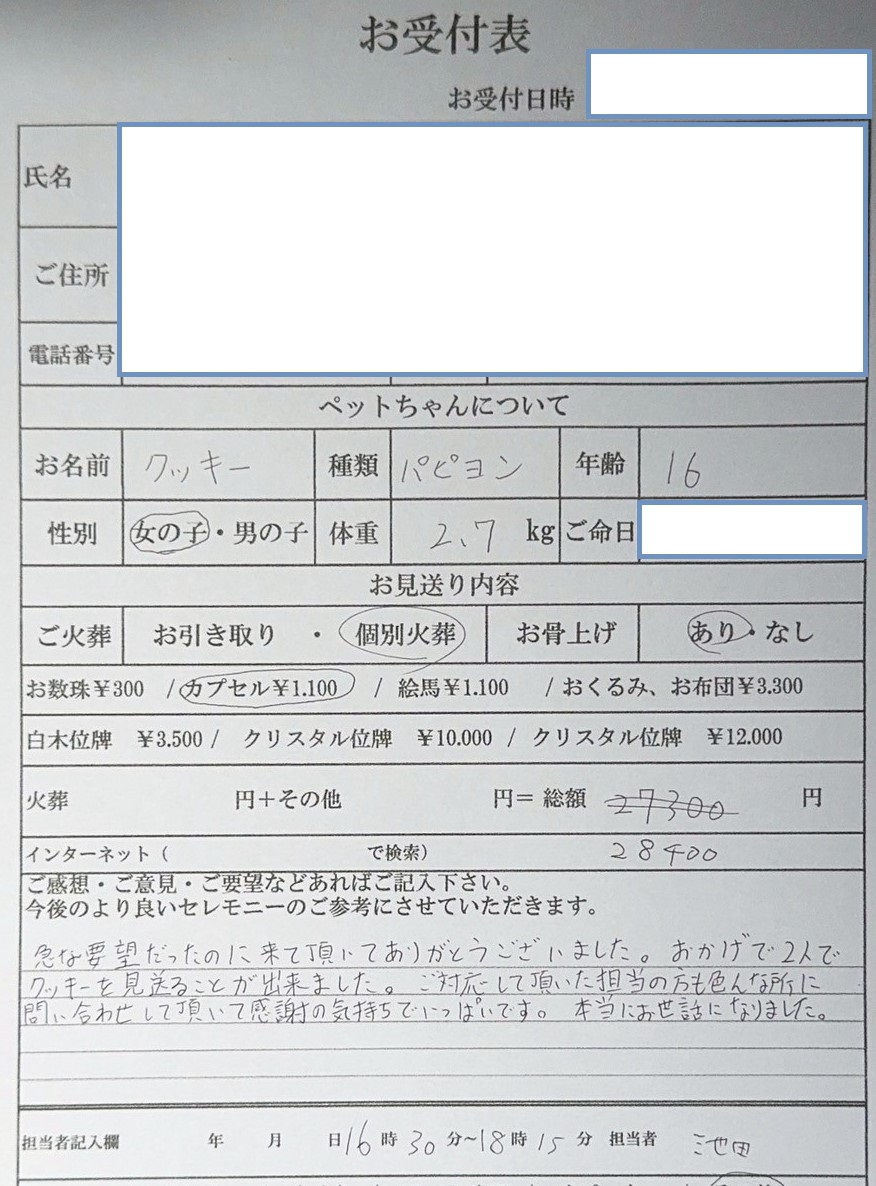 お受付表
お受付日時
氏名
ご住所
電話番号
ペットちゃんについて
お名前 クッキー 種類 パピヨン 年齢 16
性別 女の子・男の子 体重 2.7 kg ご命日
お見送り内容
ご火葬 お引き取り ・ 個別火葬 お骨上げ あり・なし
お数珠￥300 /カプセル￥1.100 / 絵馬￥1.100 /おくるみ、お布団￥3.300
白木位牌 ￥3.500 / クリスタル位牌 ￥10.000 / クリスタル位牌 ￥12.000
火葬 円＋その他 円＝ 総額 27300 円
インターネット（ で検索） 28400
ご感想・ご意見・ご要望などあればご記入下さい。
今後のより良いセレモニーのご参考にさせていただきます。
急な要望だったのに来て頂いてありがとうございました。おかげで2人で
クッキーを見送ることが出来ました。ご対応して頂いた担当の方も色んな所に
問い合わせして頂いて感謝の気持ちでいっぱいです。本当にお世話になりました。
担当者記入欄 年 月 日16時30分～18時15分 担当者 池田